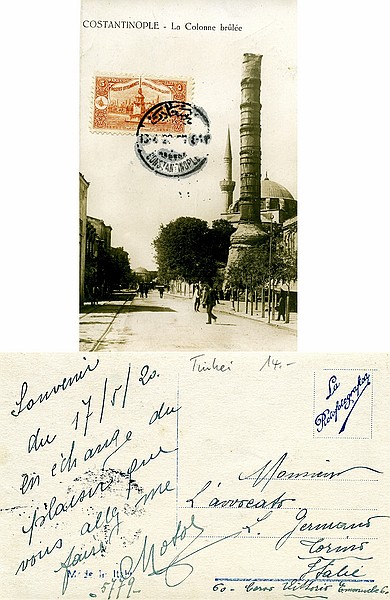 COSTANTINOPLE - La Colonne brûlée
CONSTANTINOPLE
14.-
La
Souvenir
du 17/5/20.
en échange du
plaisir que
vous allez me
faire
Made in Italy
5/79-
Monsieur
L'avvocato
L. Germano
Torino
Italie
60 - Corso Vittorio Emanuele